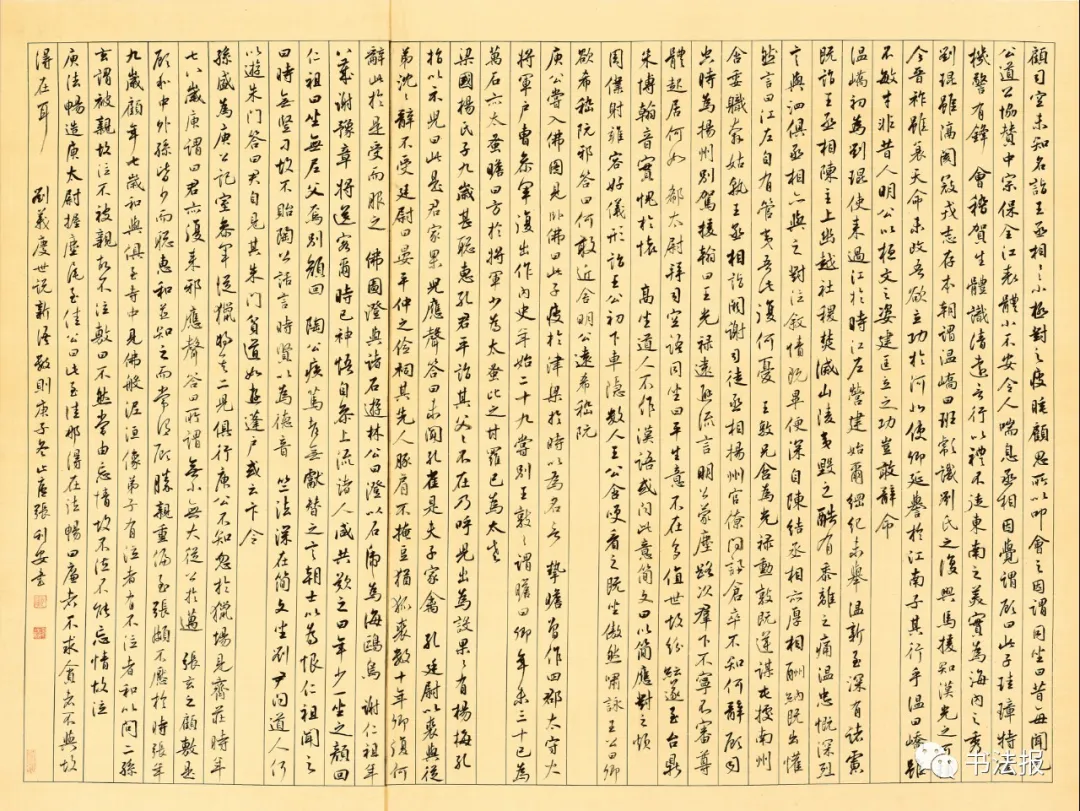 顧司空未知名詣王丞相丞相小極對之疲睡顧思所以叩會之因謂同坐曰昔每聞元
公道公協贊中宗保全江表體小不安令人喘息丞相因覺謂顧曰此子珪璋特達
機警有鋒 會稽賀生體識清遠言行以禮不徒東南之美實為海內之秀
劉琨雖隔閡寇戎志存本朝謂溫嶠曰班彪識劉氏之復興馬援知漢光之可輔
今晉祚雖衰天命未改吾欲立功於河北使卿延譽於江南子其行乎溫曰嶠雖
不敏才非昔人明公以桓文之姿建匡立之功豈敢辭命
溫嶠初為劉琨使來過江於時江左營建始爾綱紀未舉溫新至深有諸慮
既詣王丞相陳主上幽越社稷焚滅山陵夷毀之酷有黍離之痛溫忠慨深烈
言與泗俱丞相亦與之對泣敘情既畢便深自陳結丞相亦厚相酬納既出懽
然言曰江左自有管夷吾此復何憂 王敦兄含為光祿勳敦既逆謀屯據南州
含委職奔姑孰王丞相詣闕謝司徒丞相揚州官僚問訊倉卒不知何辭顧司
空時為揚州別駕援翰曰王光祿遠避流言明公蒙塵路次群下不寧不審尊
體起居何如 郗太尉拜司空語同坐曰平生意不在多值世故紛紜遂至台鼎
朱博翰音實愧於懷 高坐道人不作漢語或問此意簡文曰以簡應對之煩
周僕射雍容好儀形詣王公初下車隱數人王公含笑看之既坐傲然嘯詠王公曰卿
欲希嵇阮邪答曰何敢近舍明公遠希嵇阮
庾公嘗入佛圖見臥佛曰此子疲於津梁於時以為名言 摯瞻曾作四郡太守大
將軍戶曹參軍復出作內史年始二十九嘗別王敦敦謂瞻曰卿年未三十已為
萬石亦太蚤瞻曰方於將軍少為太蚤比之甘羅已為太老
梁國楊氏子九歲甚聰惠孔君平詣其父父不在乃呼兒出為設果果有楊梅孔
指以示兒曰此是君家果兒應聲答曰未聞孔雀是夫子家禽 孔廷尉以裘與從
弟沈沈辭不受廷尉曰晏平仲之儉祠其先人豚肩不掩豆猶狐裘數十年卿復何
辭此於是受而服之 佛圖澄與諸石遊林公曰澄以石虎為海鷗鳥 謝仁祖年
八歲謝豫章將送客爾時已神悟自參上流諸人咸共歎之曰年少一坐之顏回
仁祖曰坐無尼父焉別顏回 陶公疾篤都無獻替之言朝士以為恨仁祖聞之
曰時無豎刁故不貽陶公話言時賢以為德音 竺法深在簡文坐劉尹問道人何
以遊朱門答曰君自見其朱門貧道如遊蓬戶或云卞令
孫盛為庾公記室參軍從獵將其二兒俱行庾公不知忽於獵場見齊莊時年
七八歲庾謂曰君亦復來邪應聲答曰所謂無小無大從公於邁 張玄之顧敷是
顧和中外孫皆少而聰惠和並知之而常謂顧勝親重偏至張頗不懨於時張年
九歲顧年七歲和與俱至寺中見佛般泥洹像弟子有泣者有不泣者和以問二孫
玄謂被親故泣不被親故不泣敷曰不然當由忘情故不泣不能忘情故泣
庾法暢造庾太尉握麈尾至佳公曰此至佳那得在法暢曰廉者不求貪者不與故
得在耳 劉義慶世說新語數則庚子冬
張利安書
书法报